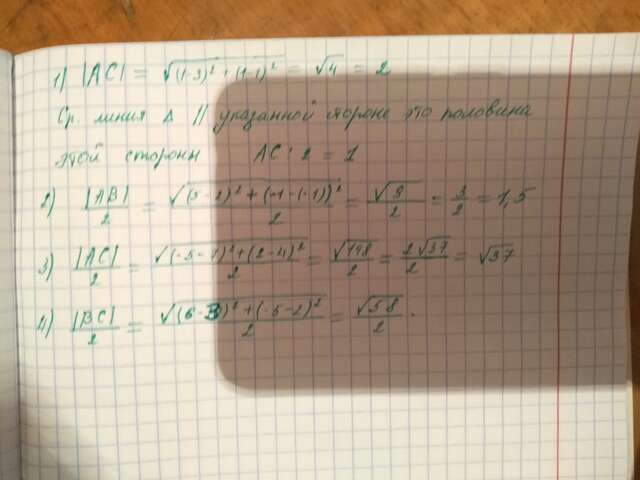 1) |AC| = √(1-3)² + (1-1)² = √4 = 2
Ср. линия Δ // указанной стороне это половина
этой стороны AC : 2 = 1
2) |AB|/2 = √(5-2)² + (-1-(-1))²/2 = √9/2 = 3/2 = 1,5
3) |AC|/2 = √(-5-7)² + (2-4)²/2 = √148/2 = 2√37/2 = √37
4) |BC|/2 = √(6-3)² + (-5-2)²/2 = √58/2 .